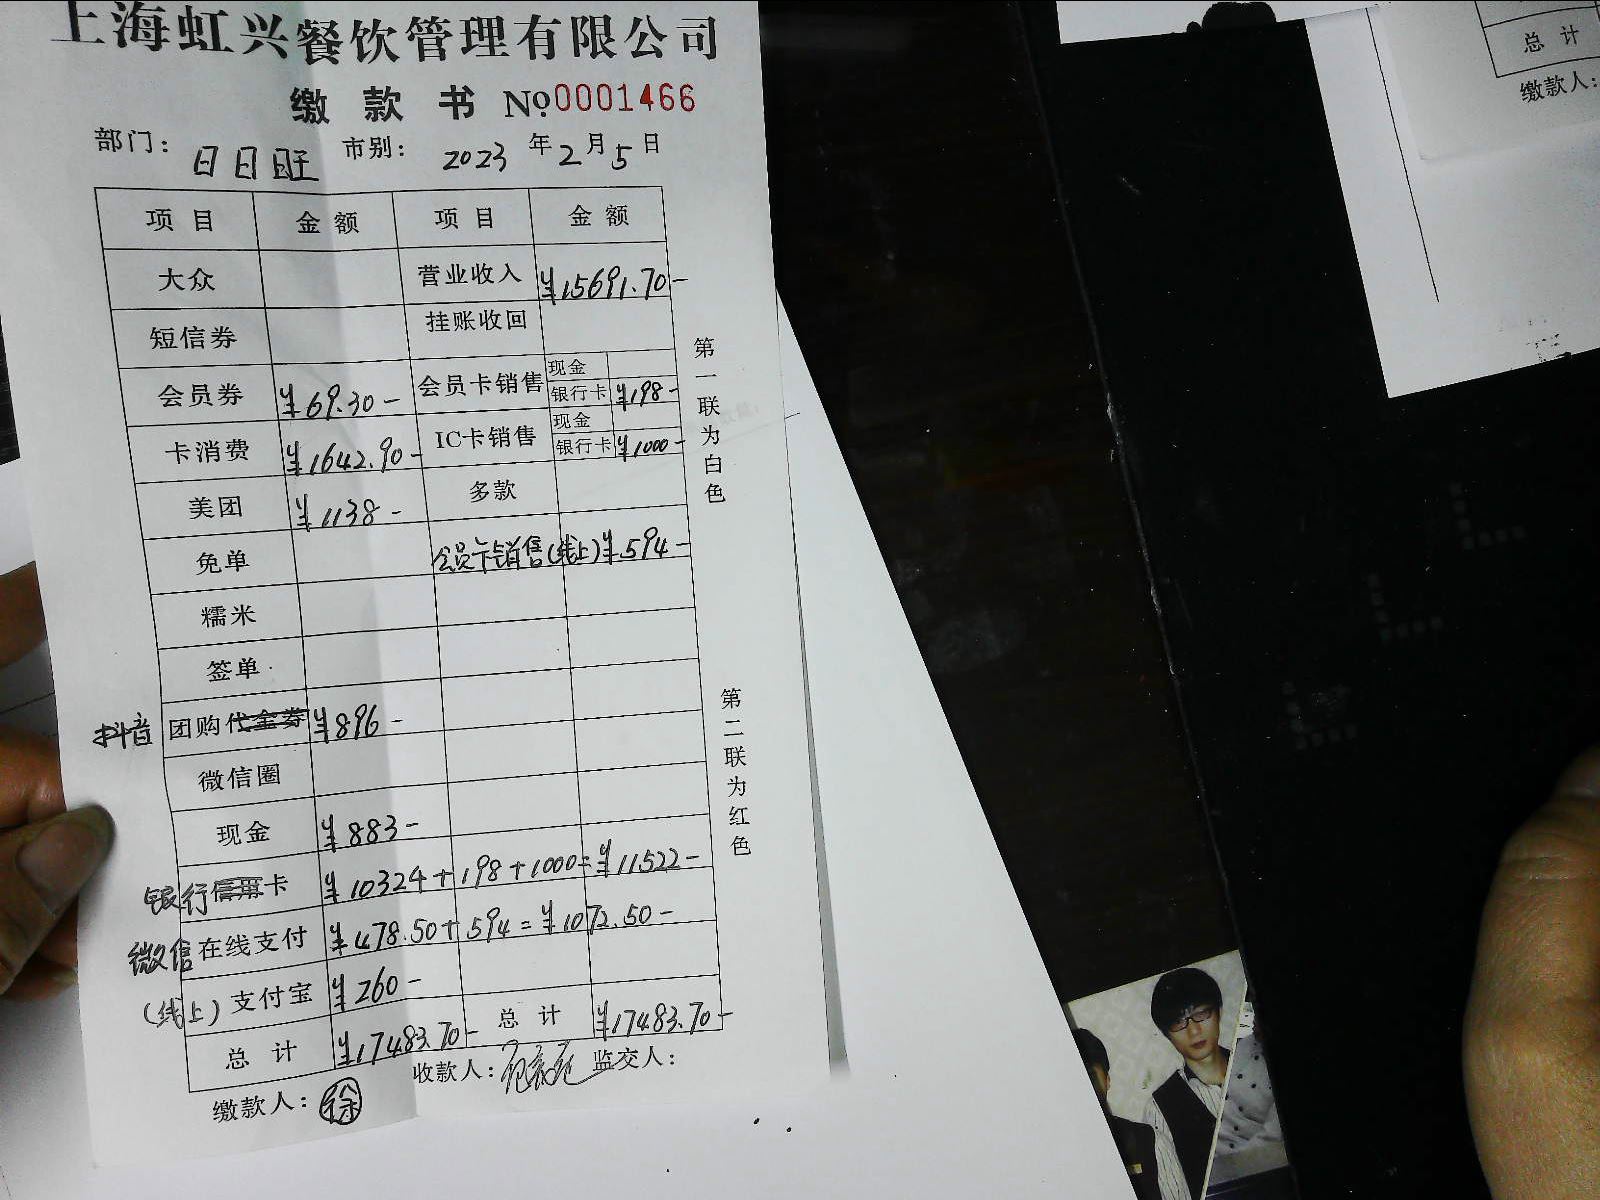 上海虹兴餐饮管理有限公司
缴款书 №0001466
部门: 日日旺 市别: 2023年2月5日
项目 金额 项目 金额
大众 营业收入 ¥15691.70-
短信券 挂账收回
会员券 ¥69.30- 会员卡销售 现金
银行卡 ¥198-
卡消费 ¥1642.90- IC卡销售 现金
银行卡 ¥1000-
美团 ¥1138- 多款
免单 会员卡销售(线上) ¥594-
糯米
签单
抖音 团购代金券 ¥896-
微信圈
现金 ¥883-
银行信用卡 ¥10324+198+1000=¥11522-
微信在线支付 ¥478.50+594=¥1072.50-
(线上)支付宝 ¥260-
总计 ¥17483.70- 总计 ¥17483.70-
缴款人: 徐 收款人: 监交人:
第一联为白色
第二联为红色
总计
缴款人: